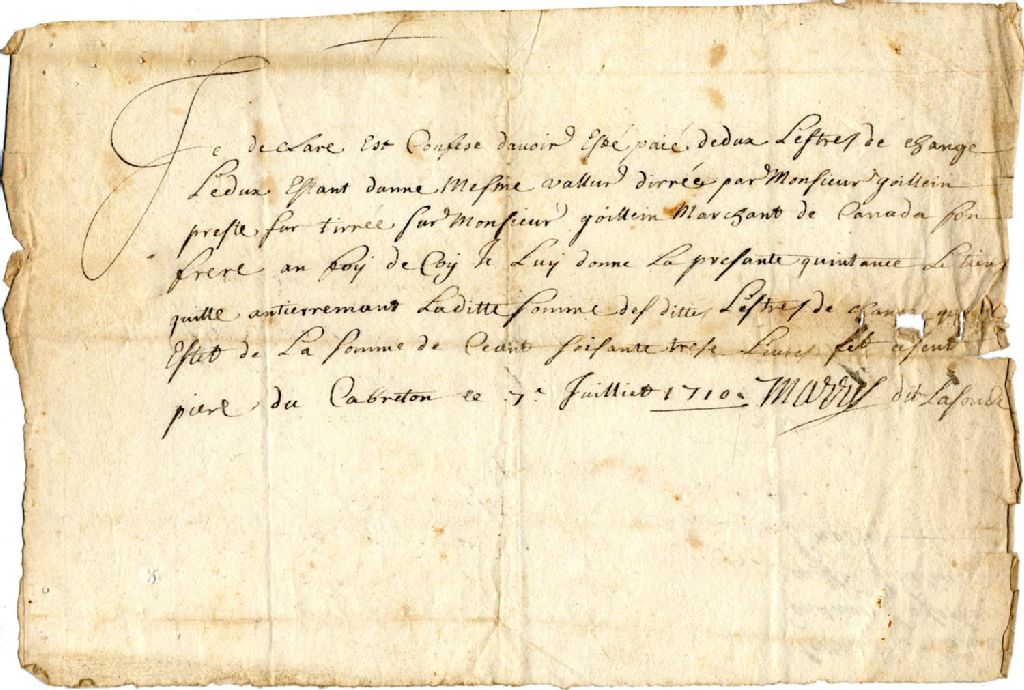 Je declare est Confese d'avoir Esté paié dedux Lestres de change
Ledux Estant donne Mesme vallur dirrée par Monsieur goillein
preste sur tirrée sur Monsieur goillein Marchant de Canada son
frere an foy de Coy Je Luy donne La presante quintance Le tien
quille antierremant Laditte somme des dittes Lestres de chan
Estet de La somme de Ceant soisante trese Livres fet a sent
piere du Cabreton ce 7e Juilliet 1710 Marris dit Lasonde